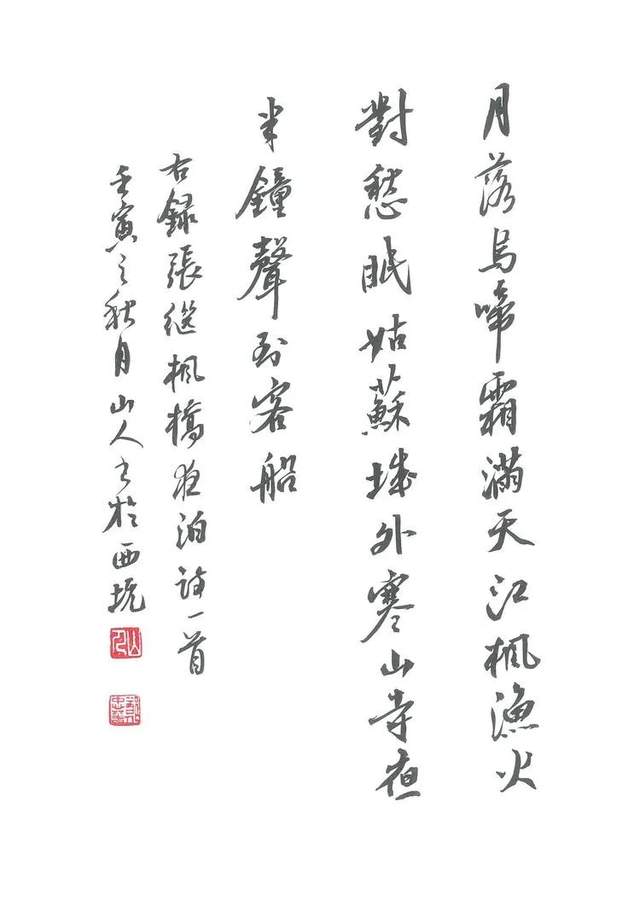 月落烏啼霜滿天江楓漁火
對愁眠姑蘇城外寒山寺夜
半鐘聲到客船
右録張継楓橋夜泊詩一首
壬寅之秋月山人书於西坑
山人